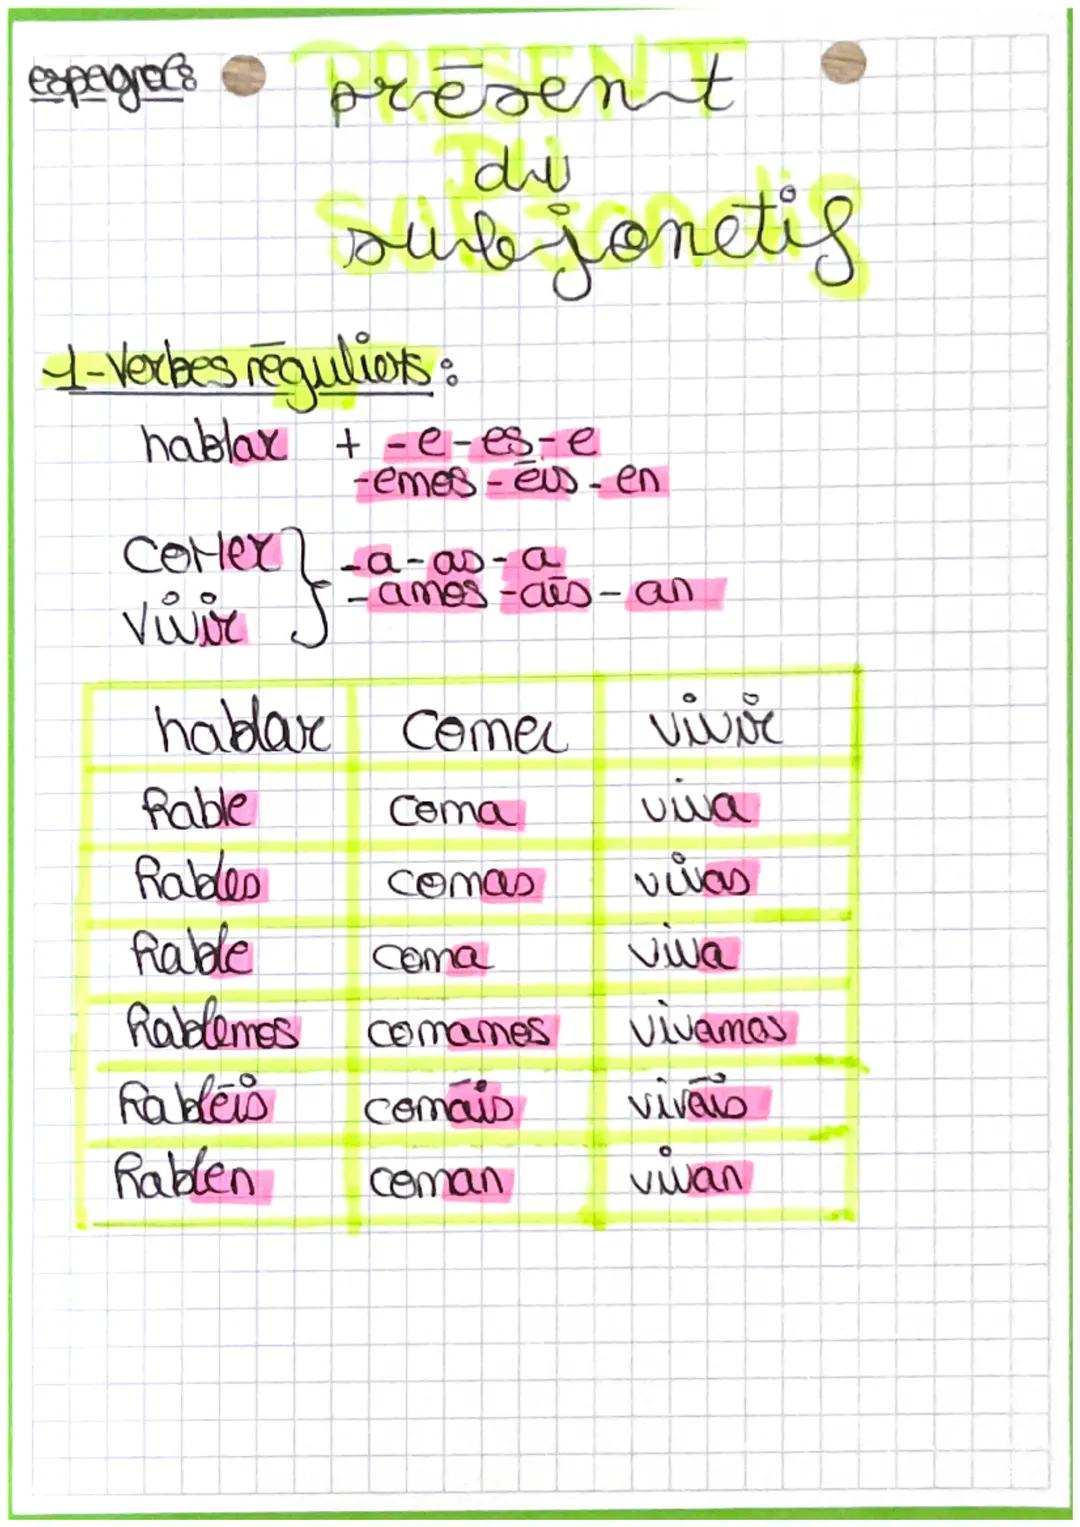 espagnol:
PRESENT
présent
DU
du
subjonctif
subjonctif
1-Verbes réguliers:
hablar + -e-es-e
-emos-éis-en
Comer } -a-as-a
vivir -amos-áis-an
hablar comer vivir
hable coma viva
hables comas vivas
hable coma viva
hablemos comamos vivamos
habléis comáis viváis
hablen coman vivan